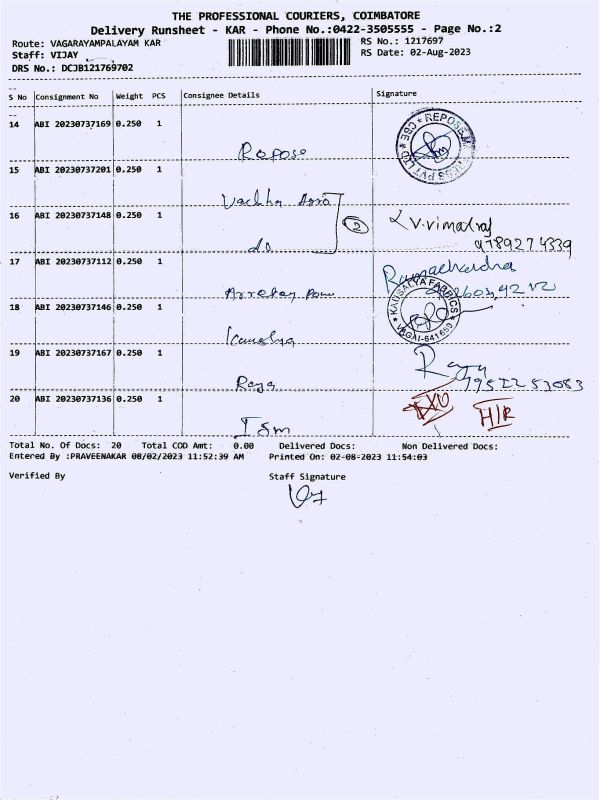 THE PROFESSIONAL COURIERS, COIMBATORE
Delivery Runsheet - KAR - Phone No.:0422-3505555 - Page No.:2
Route: VAGARAYAMPALAYAM KAR
RS No.: 1217697
Staff: VIJAY
RS Date: 02-Aug-2023
DRS No.: DCJB121769702
S No Consignment No Weight PCS Consignee Details Signature
14 ABI 20230737169 0.250 1
Repose
15 ABI 20230737201 0.250 1
16 ABI 20230737148 0.250 1
do
2
V.vimalraj
9789274339
17 ABI 20230737112 0.250 1
Ramachandra
18 ABI 20230737146 0.250 1
KAUSALYA FABRICS
19 ABI 20230737167 0.250 1
Raja
20 ABI 20230737136 0.250 1
Ism
Total No. Of Docs: 20 Total COD Amt: 0.00 Delivered Docs: Non Delivered Docs:
Entered By :PRAVEENAKAR 08/02/2023 11:52:39 AM Printed On: 02-08-2023 11:54:03
Verified By Staff Signature